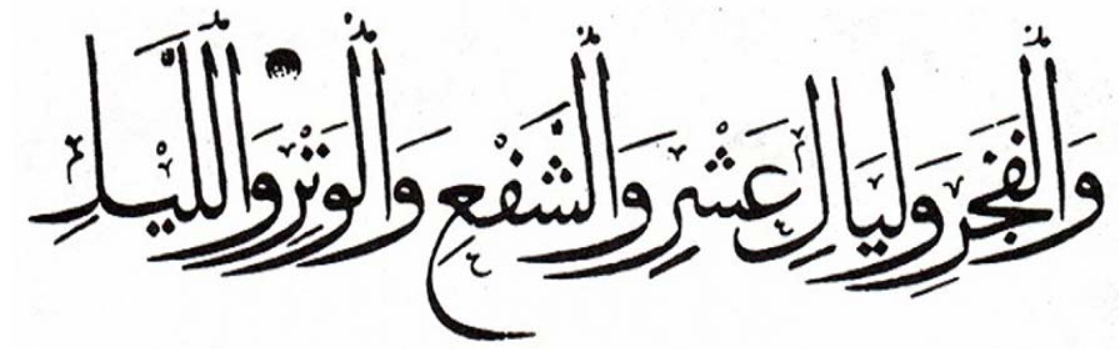 وَالْفَجْرِ وَلَيَالٍ عَشْرٍ وَالشَّفْعِ وَالْوَتْرِ وَاللَّيْلِ